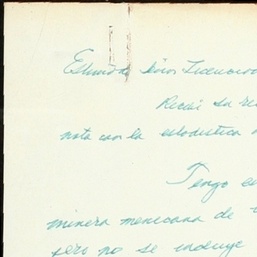 Estimado Señor Licenciado
Recibí su
nota con la estadística
Tengo en
minera mexicana de
pero no se incluye